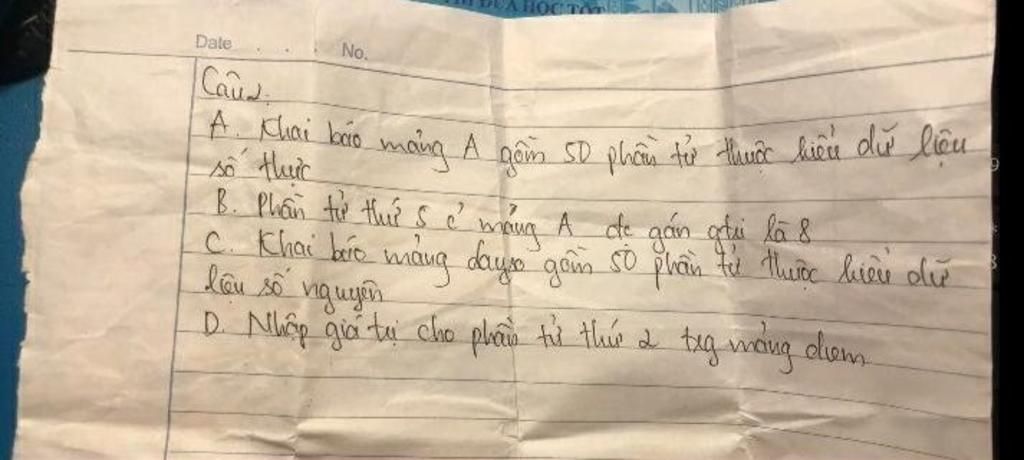 THI ĐUA HỌC TỐT
Date . . . No.
Câu 2.
A. Khai báo mảng A gồm 50 phần tử thuộc kiểu dữ liệu
số thực
B. Phần tử thứ 5 ở mảng A đc gán gtri là 8
C. Khai báo mảng dayso gồm 50 phần tử thuộc kiểu dữ
liệu số nguyên
D. Nhập giá trị cho phần tử thứ 2 trg mảng diem